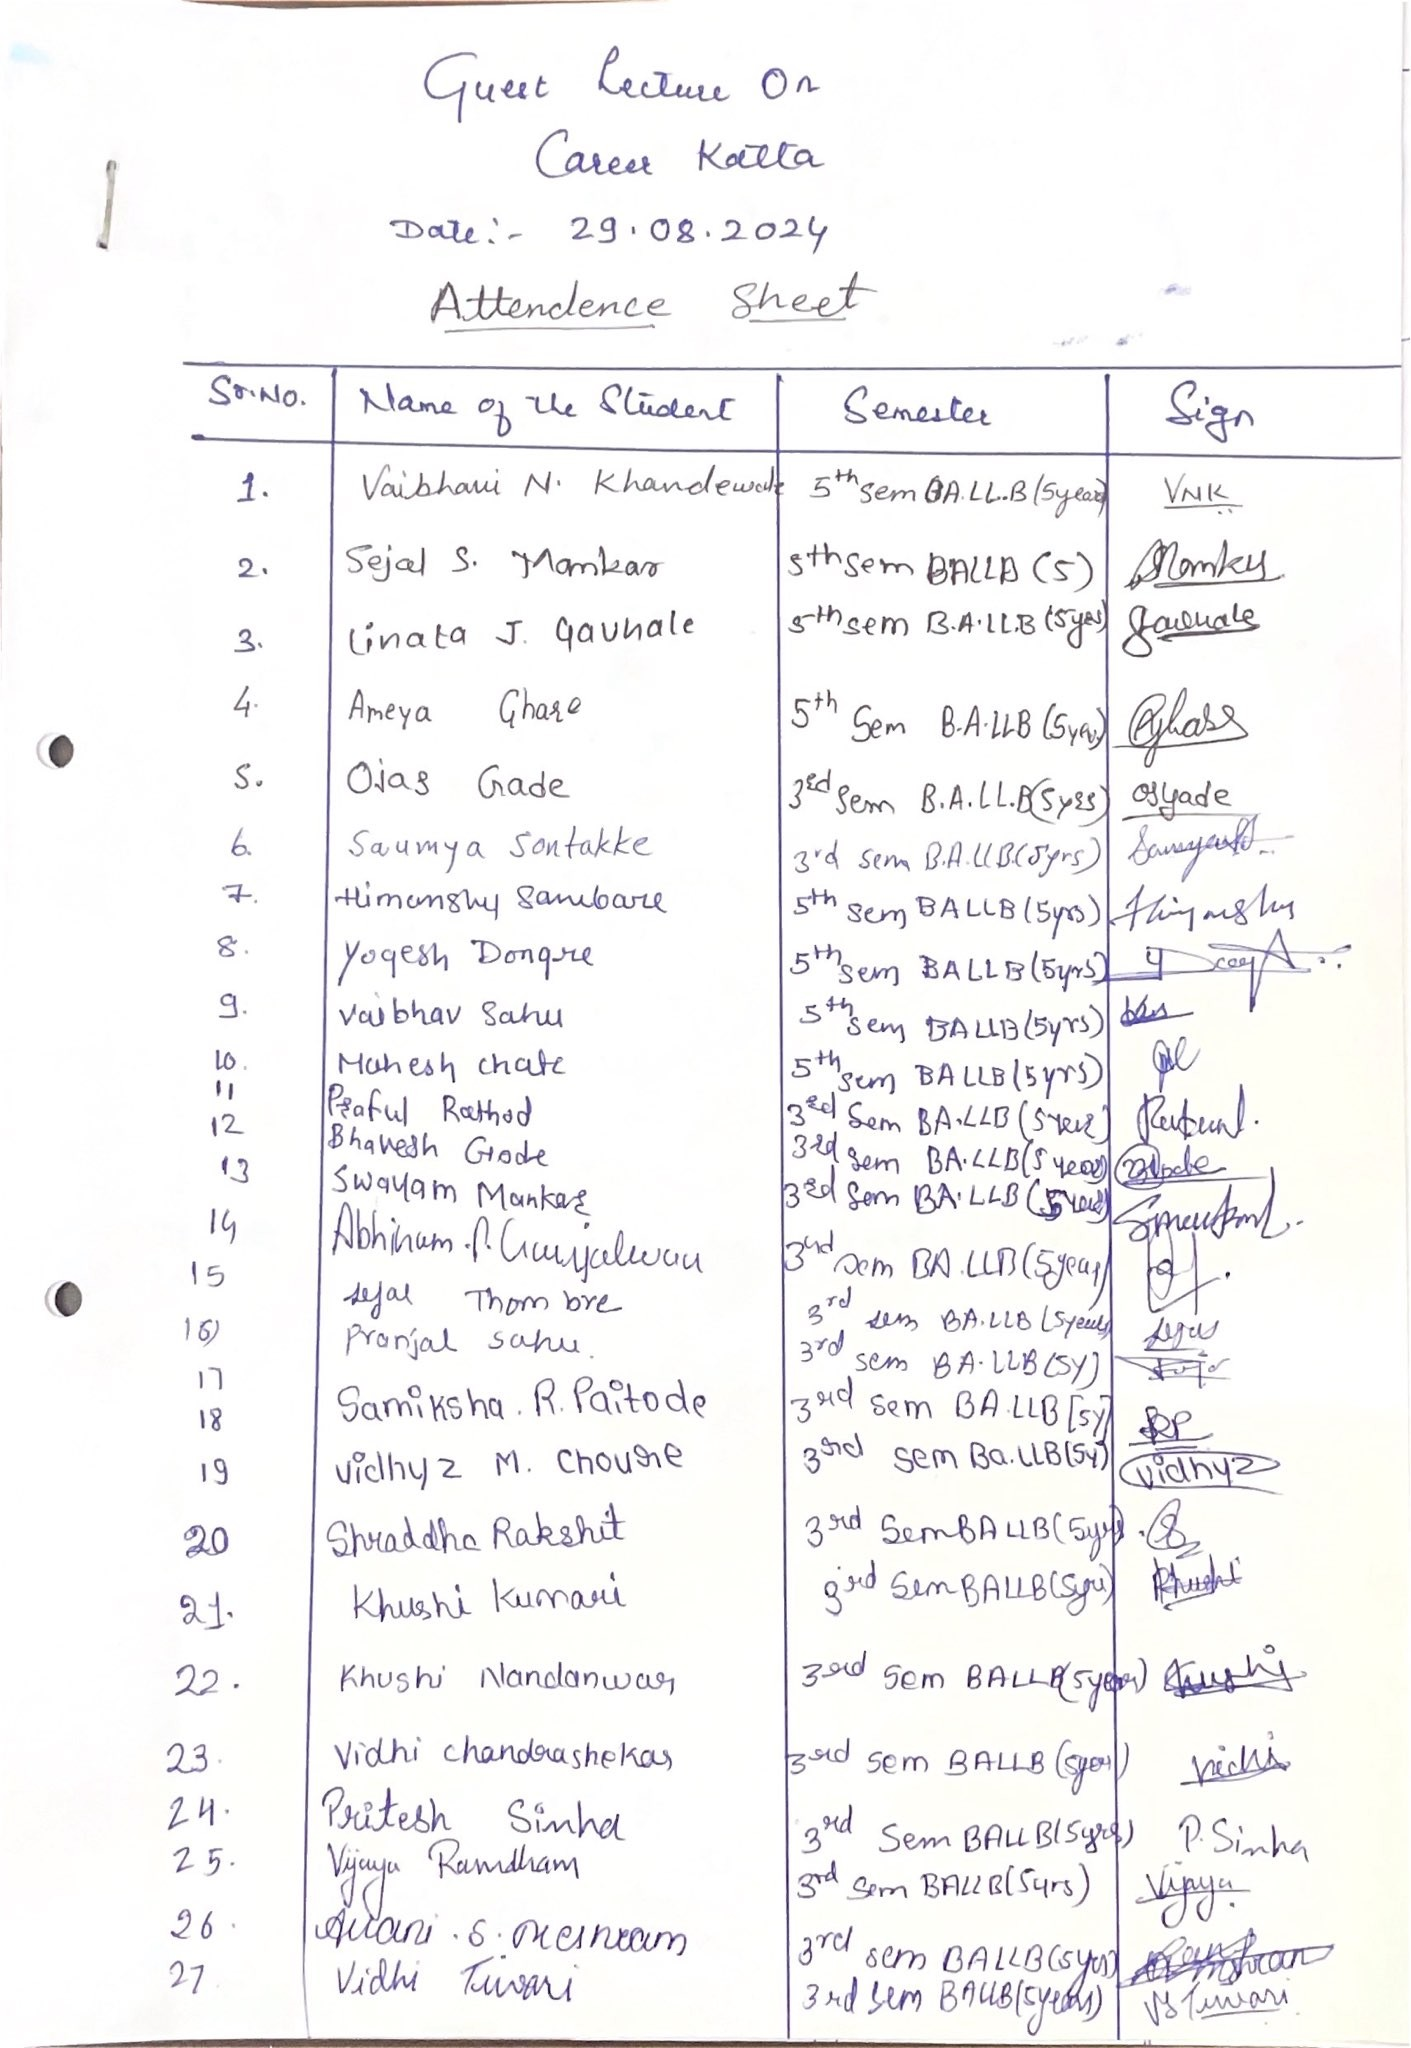 Guest Lecture On
Career Katta
Date:- 29.08.2024
Attendence Sheet
Sr.No. Name of the Student Semester Sign
1. Vaibhavi N. Khandewale 5th sem BA.LL.B (5year) VNK
2. Sejal S. Mankar 5th sem BALLB (5)
3. Linata J. Gavhale 5th sem B.A.LL.B (5yrs) Gavhale
4. Ameya Ghare 5th Sem B.A.LLB (5years)
5. Ojas Gade 3rd sem B.A.LL.B(5yrs) osgade
6. Saumya Sontakke 3rd sem B.A.LLB.(5yrs)
7. Himanshu Sambare 5th sem BALLB (5yrs) Himanshu
8. Yogesh Dongre 5th sem BALLB (5yrs)
9. Vaibhav Sahu 5th sem BALLB (5yrs)
10. Mahesh chate 5th sem BALLB (5yrs)
11 Praful Rathod 3rd Sem BA.LLB (5year)
12 Bhavesh Gode 3rd sem BA.LLB(5 years)
13 Swayam Mankar 3rd sem BA.LLB (5years)
14 3rd sem BA.LLB (5years)
15 Sejal Thombre 3rd sem BA.LLB (5years)
16) Pranjal sahu. 3rd sem BA.LLB(5Y)
17
18 Samiksha. R. Paitode 3rd sem BA.LLB [5Y] RP
19 vidhyz M. Choure 3rd sem Ba.LLB(5y) vidhyz
20 Shraddha Rakshit 3rd Sem BALLB (5yrs)
21. Khushi Kumari 3rd Sem BALLB(5yr) Khushi
22. Khushi Nandanwar 3rd Sem BALLB(5years) Khushi
23. Vidhi chandrashekar 3rd sem BALLB (5year) Vidhi
24. Pritesh Sinha 3rd Sem BALLB(5yrs) P. Sinha
25. Vijaya Ramdham 3rd Sem BALLB(5yrs) Vijaya
26. S. Meshram 3rd sem BALLB(5yrs)
27 Vidhi Tiwari 3rd Sem BALLB(5years) VS Tiwari